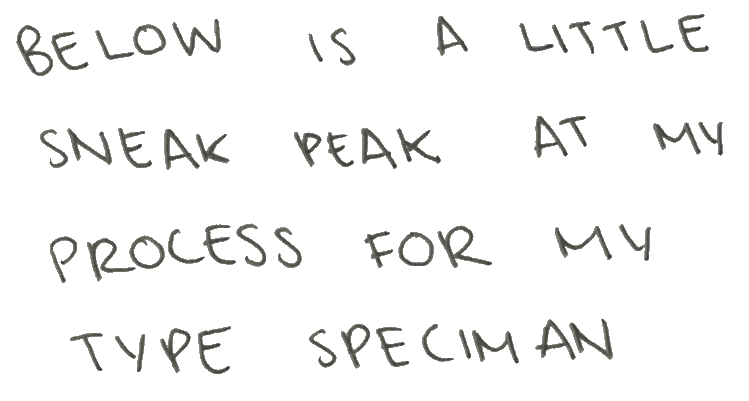 BELOW IS A LITTLE
SNEAK PEAK AT MY
PROCESS FOR MY
TYPE SPECIMAN